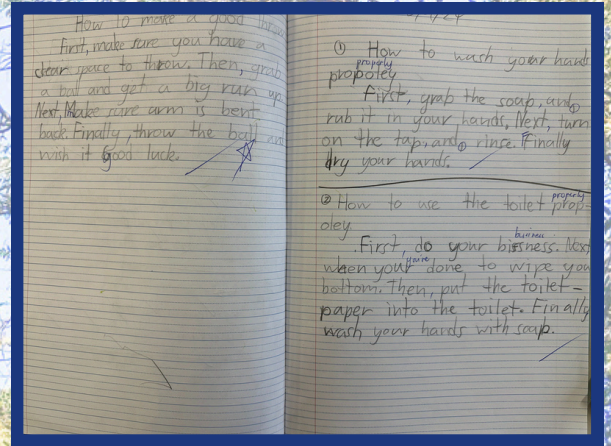 How to make a good throw
First, make sure you have a
clear space to throw. Then, grab
a ball and get a big run up
Next, Make sure arm is bent
back. Finally, throw the ball and
wish it Good luck.
① How to wash your hands
properly
propoley
First, grab the soap, and
rub it in your hands, Next, turn
on the tap, and rinse. Finally
dry your hands.
② How to use the toilet prop-
properly
oley
business
First, do your bissness. Next
you're
when your done to wipe you
bottom. Then, put the toilet-
paper into the toilet. Finally
wash your hands with soap.